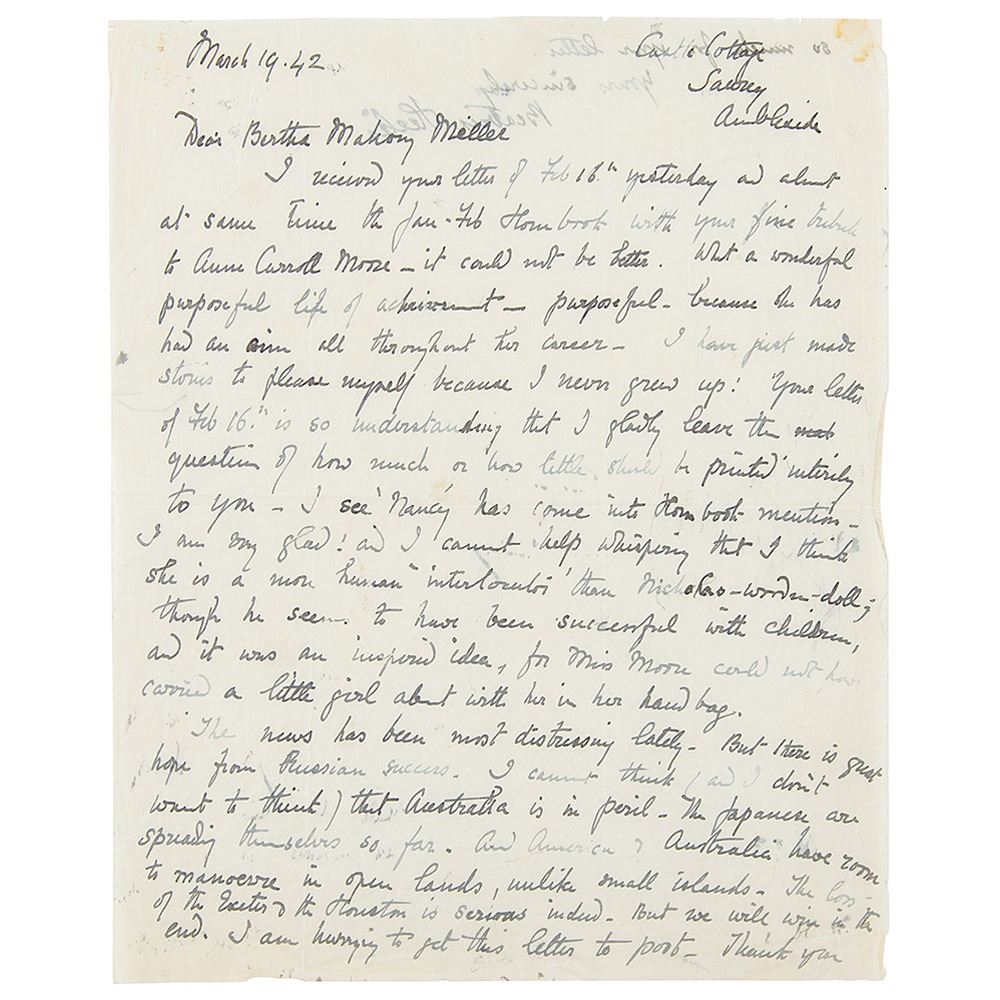 March 19.42
Castle Cottage
Sawrey
Ambleside
Dear Bertha Mahony Miller
I received your letter of Feb 16.th yesterday and about
at same time the Jan-Feb Hornbook with your fine tribute
to Anne Carroll Moore – it could not be better. What a wonderful
purposeful life of achievement – purposeful – because she has
had an aim all throughout her career – I have just made
stories to please myself because I never grew up! Your letter
of Feb 16.th is so understanding that I gladly leave the
question of how much or how little should be printed entirely
to you – I see 'Nancy' has come into Horn book mention –
I am very glad! and I cannot help whispering that I think
she is a more human 'interlocutor' than Nicholas-wooden-doll;
though he seems to have been successful with children,
and it was an inspired idea, for Miss Moore could not have
carried a little girl about with her in her hand bag.
The news has been most distressing lately – But there is great
hope from Russian success. I cannot think (and I don't
want to think) that Australia is in peril – The Japanese are
spreading themselves so far. And America & Australia have room
to manoevre in open lands, unlike small islands – The loss
of the Exeter & the Houston is serious indeed – But we will win in the
end. I am hurrying to get this letter to post – Thank you
so much for your letter
Yours sincerely
Beatrix Heelis